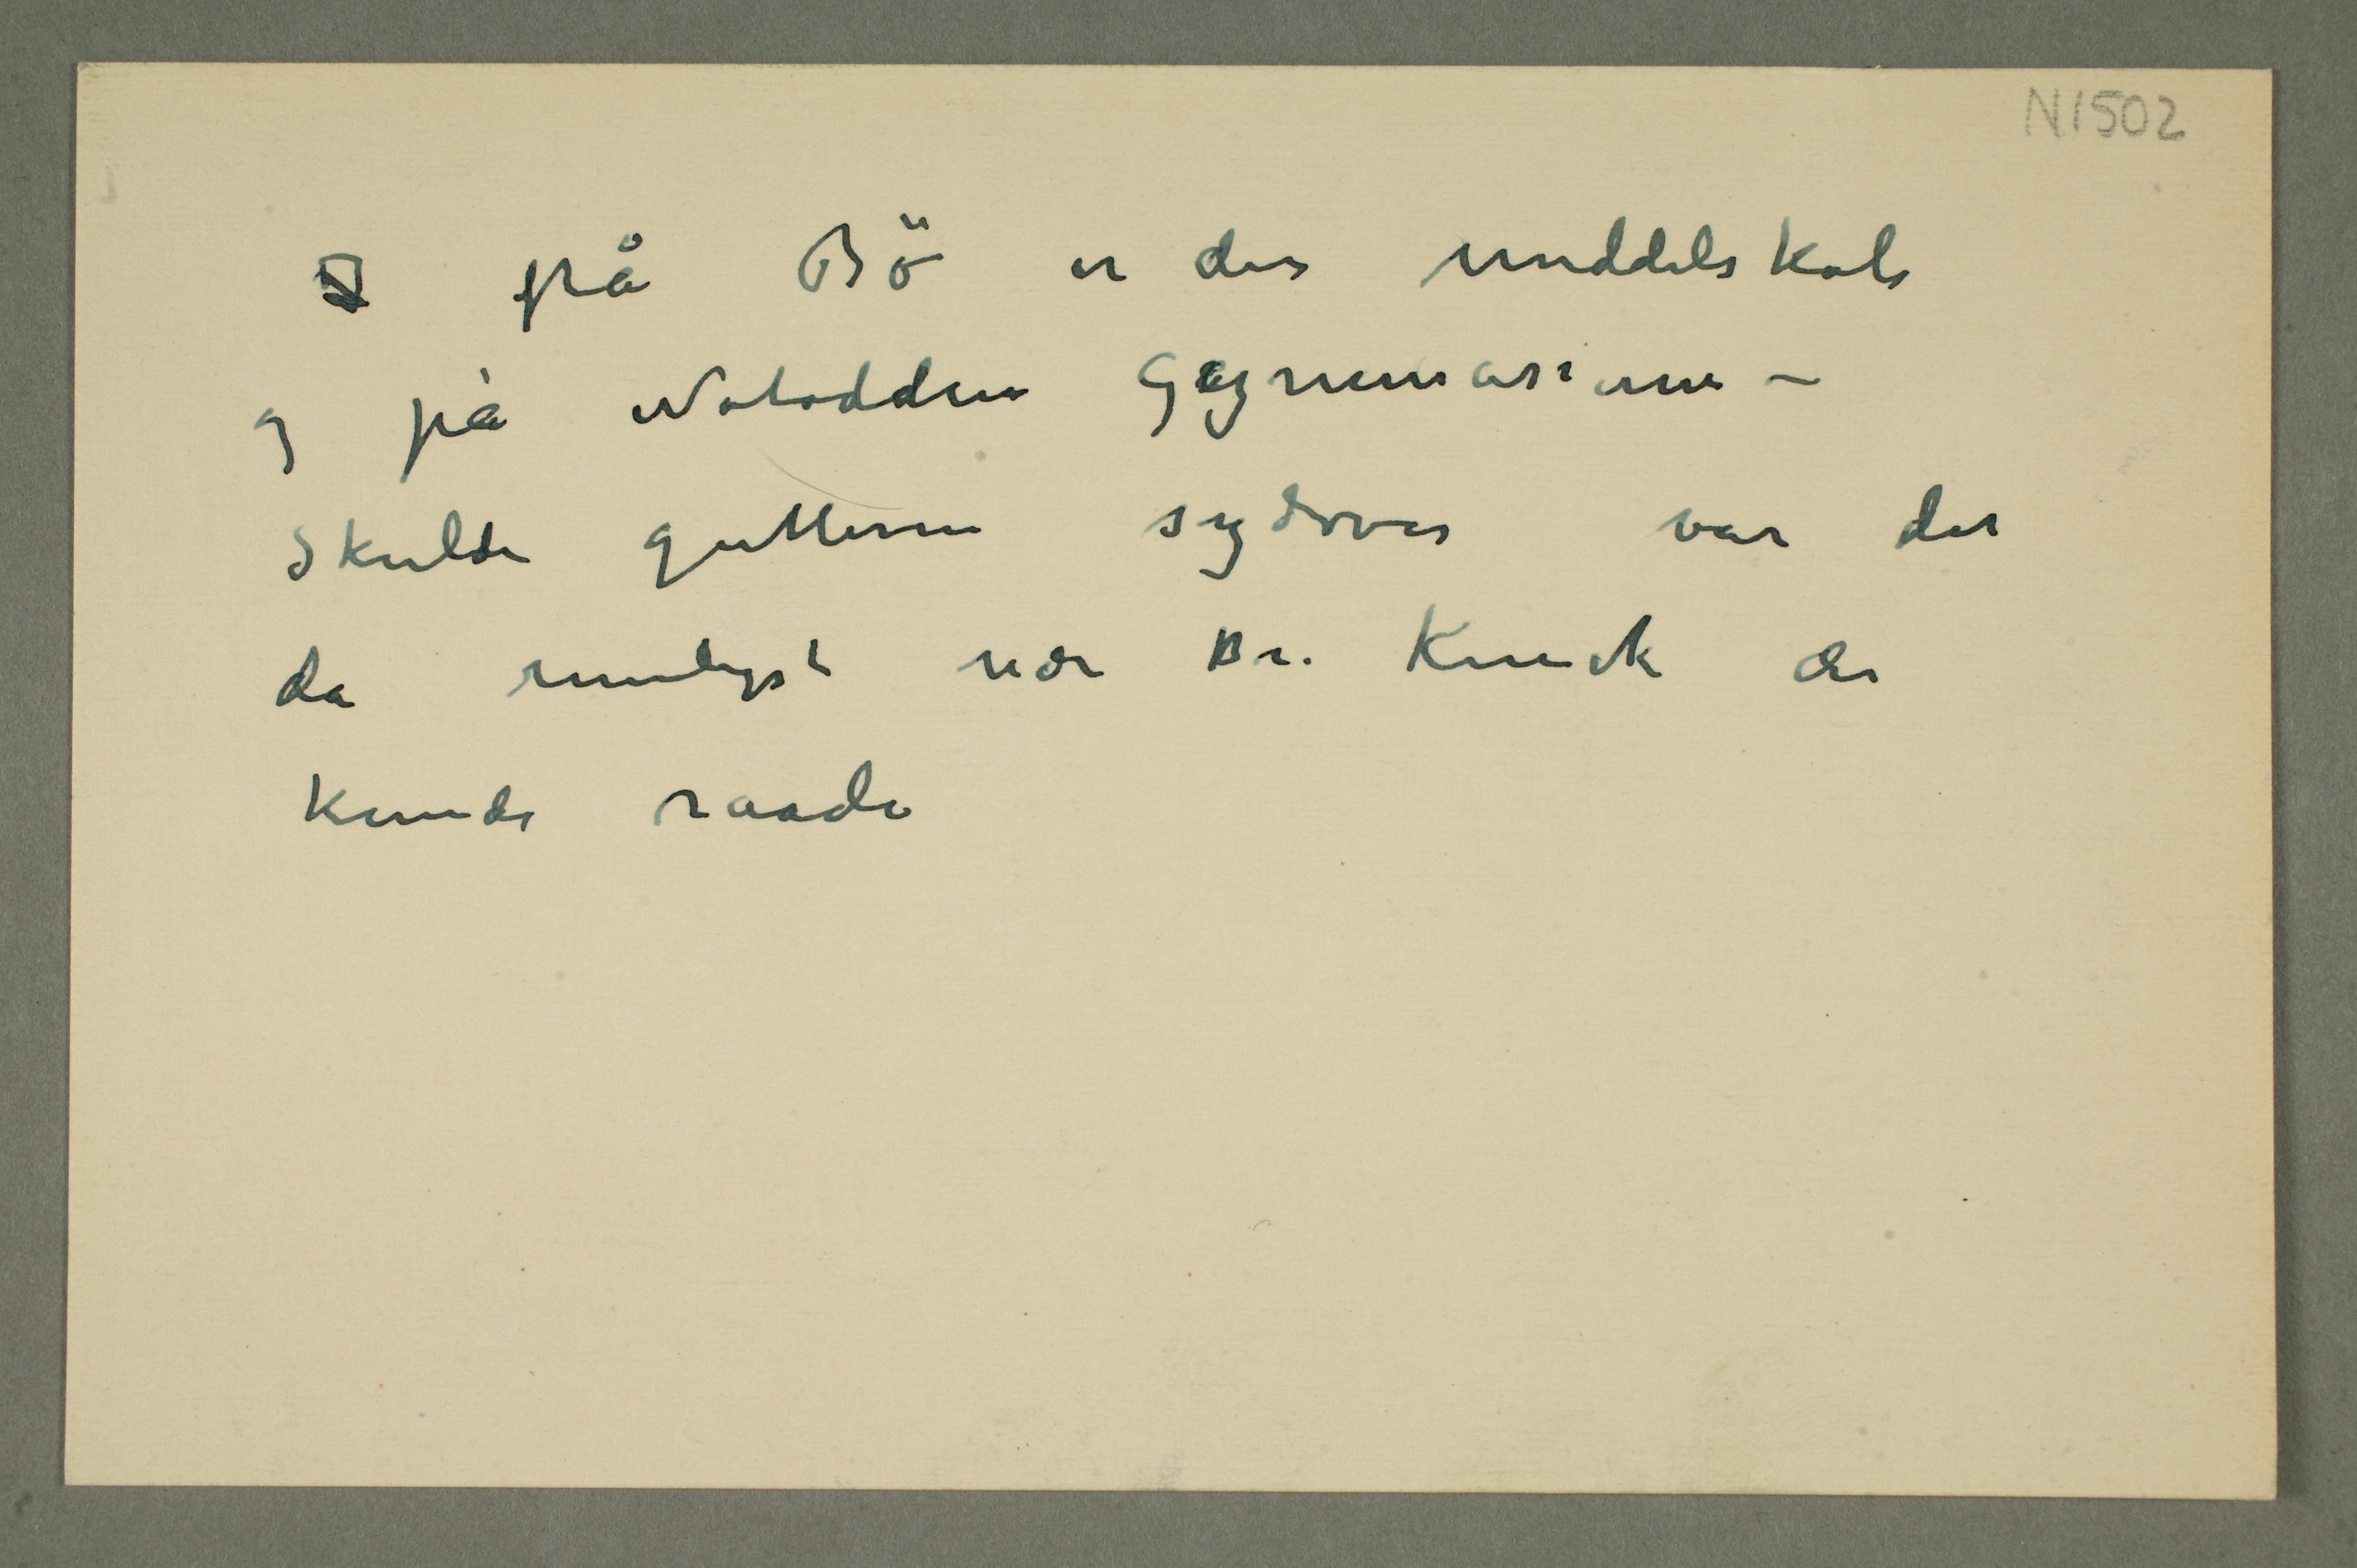 N1502
på Bö er der middelskole
og på Notodden Gygnmasium –
Skulde gutterne sydover var det
da rimeligst når Dr. Kinck de
kunde raade